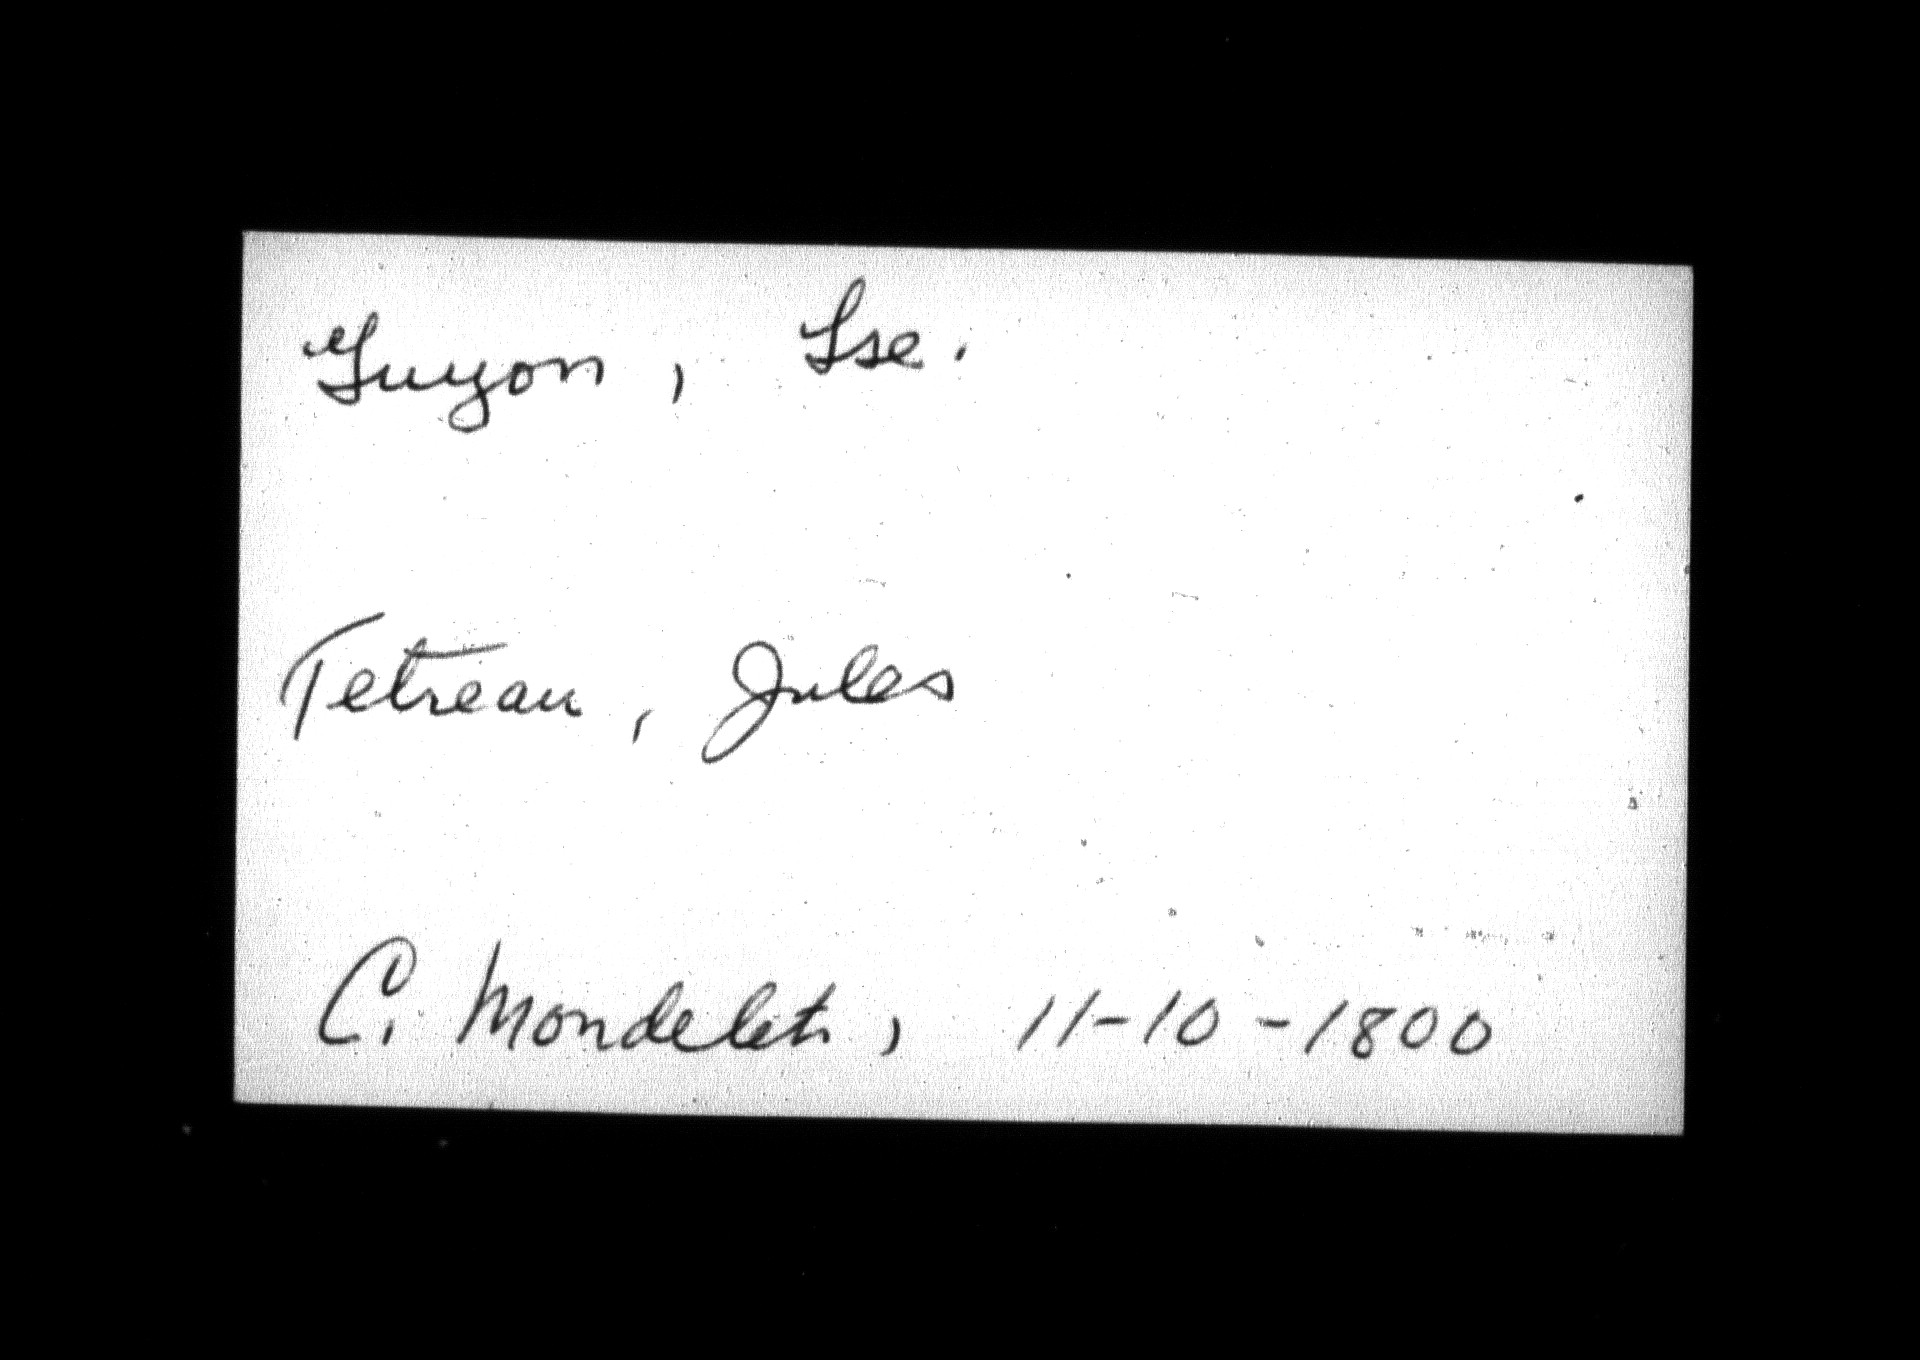 Guyon, Lse.
Tetreau, Jules
C. Mondelet, 11-10-1800